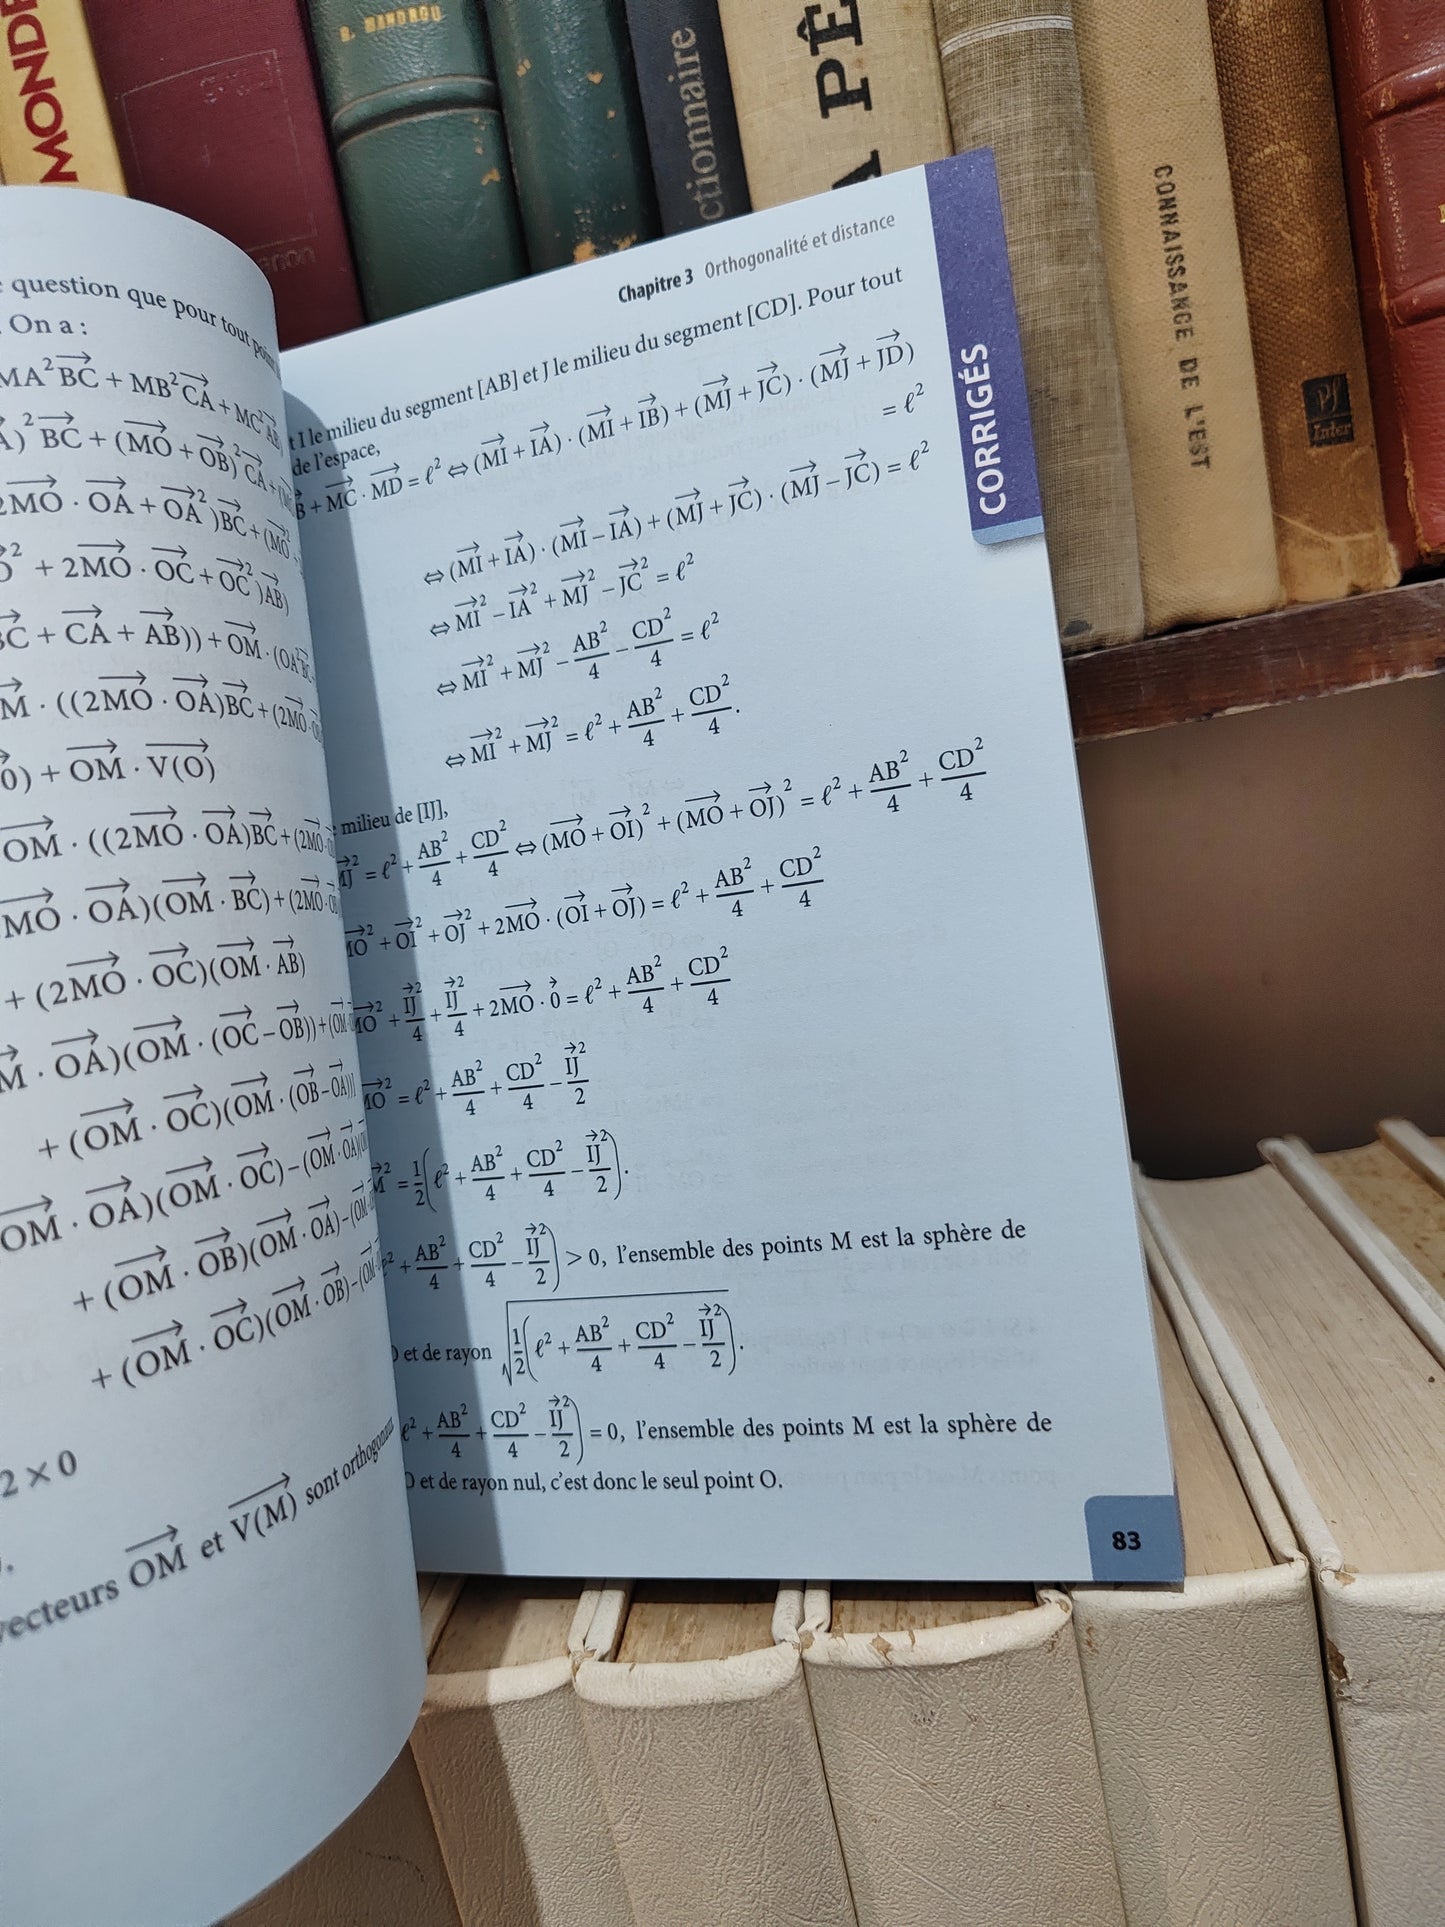 MONDE
R. MINDROU
ctionnaire
PÊ
A
CONNAISSANCE DE L'EST
Inter
question que pour tout
On a :
MA²BC→ + MB²CA→ + MC²AB→
)²BC→ + (MO→ + OB→)²CA→ +
2MO→ · OA→ + OA→²)BC→ + (MO→²
² + 2MO→ · OC→ + OC→²)AB→)
BC→ + CA→ + AB→)) + OM→ · (OA²BC→
M→ · ((2MO→ · OA→)BC→ + (2MO→ ·
0) + OM→ · V(O)→
OM→ · ((2MO→ · OA→)BC→ + (2MO→ ·
MO→ · OA→)(OM→ · BC→) + (2MO→ ·
+ (2MO→ · OC→)(OM→ · AB→)
M→ · OA→)(OM→ · (OC→ – OB→)) + (OM→ ·
+ (OM→ · OC→)(OM→ · (OB→ – OA→))]
OM→ · OA→)(OM→ · OC→) – (OM→ · OA→)
+ (OM→ · OB→)(OM→ · OA→) – (OM→ ·
+ (OM→ · OC→)(OM→ · OB→) – (OM→ ·
2 × 0
vecteurs OM→ et V(M)→ sont orthogonaux
Chapitre 3 Orthogonalité et distance
CORRIGÉS
t I le milieu du segment [AB] et J le milieu du segment [CD]. Pour tout
de l'espace,
B→ + MC→ · MD→ = ℓ² ⇔ (MI→ + IA→) · (MI→ + IB→) + (MJ→ + JC→) · (MJ→ + JD→)
= ℓ²
⇔ (MI→ + IA→) · (MI→ – IA→) + (MJ→ + JC→) · (MJ→ – JC→) = ℓ²
⇔ MI→² – IA→² + MJ→² – JC→² = ℓ²
⇔ MI→² + MJ→² – AB²/4 – CD²/4 = ℓ²
⇔ MI→² + MJ→² = ℓ² + AB²/4 + CD²/4.
milieu de [IJ],
MJ→² = ℓ² + AB²/4 + CD²/4 ⇔ (MO→ + OI→)² + (MO→ + OJ→)² = ℓ² + AB²/4 + CD²/4
MO→² + OI→² + OJ→² + 2MO→ · (OI→ + OJ→) = ℓ² + AB²/4 + CD²/4
MO→² + IJ→²/4 + IJ→²/4 + 2MO→ · 0→ = ℓ² + AB²/4 + CD²/4
MO→² = ℓ² + AB²/4 + CD²/4 – IJ→²/2
M→² = 1/2(ℓ² + AB²/4 + CD²/4 – IJ→²/2).
ℓ² + AB²/4 + CD²/4 – IJ→²/2) > 0, l'ensemble des points M est la sphère de
O et de rayon √(1/2(ℓ² + AB²/4 + CD²/4 – IJ→²/2)).
ℓ² + AB²/4 + CD²/4 – IJ→²/2) = 0, l'ensemble des points M est la sphère de
O et de rayon nul, c'est donc le seul point O.
83